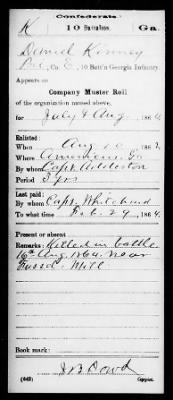 Confederate.
K 10 Battalion. Ga.
Daniel Kinney
Pvt, Co. E, 10 Batt'n Georgia Infantry.
Appears on
Company Muster Roll
of the organization named above,
for July & Aug, 1864
Enlisted:
When Aug 10, 186
Where Americus, Ga
By whom Capt.
Period 3 yrs
Last paid:
By whom Capt. Whitehead
To what time Feb. 29, 1864.
Present or absent
Remarks: Killed in battle
16th Aug. 1864. near
Fussel. Mill
Book mark:
(642) Copyist.